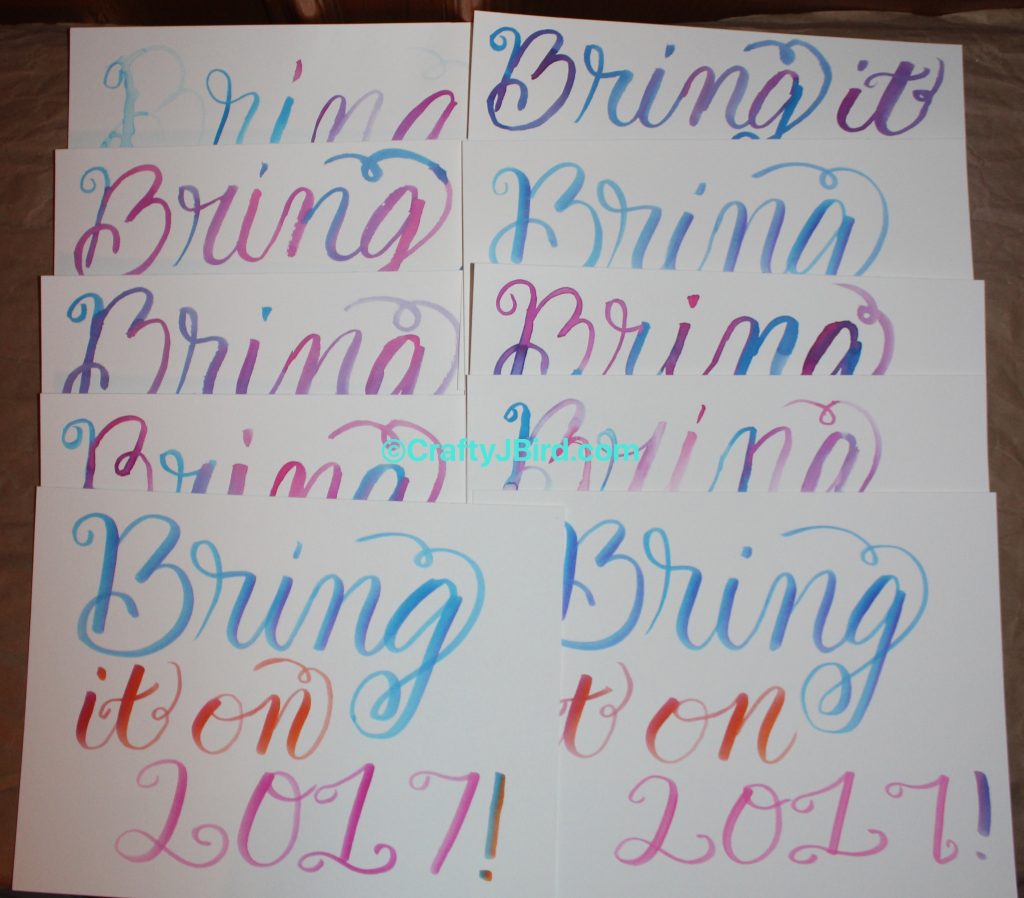 Bring
Bring it
Bring
Bring
Bring
Bring
Bring
Bring
©CraftyJBird.com
Bring
it on
2017!
Bring
t on
2017!